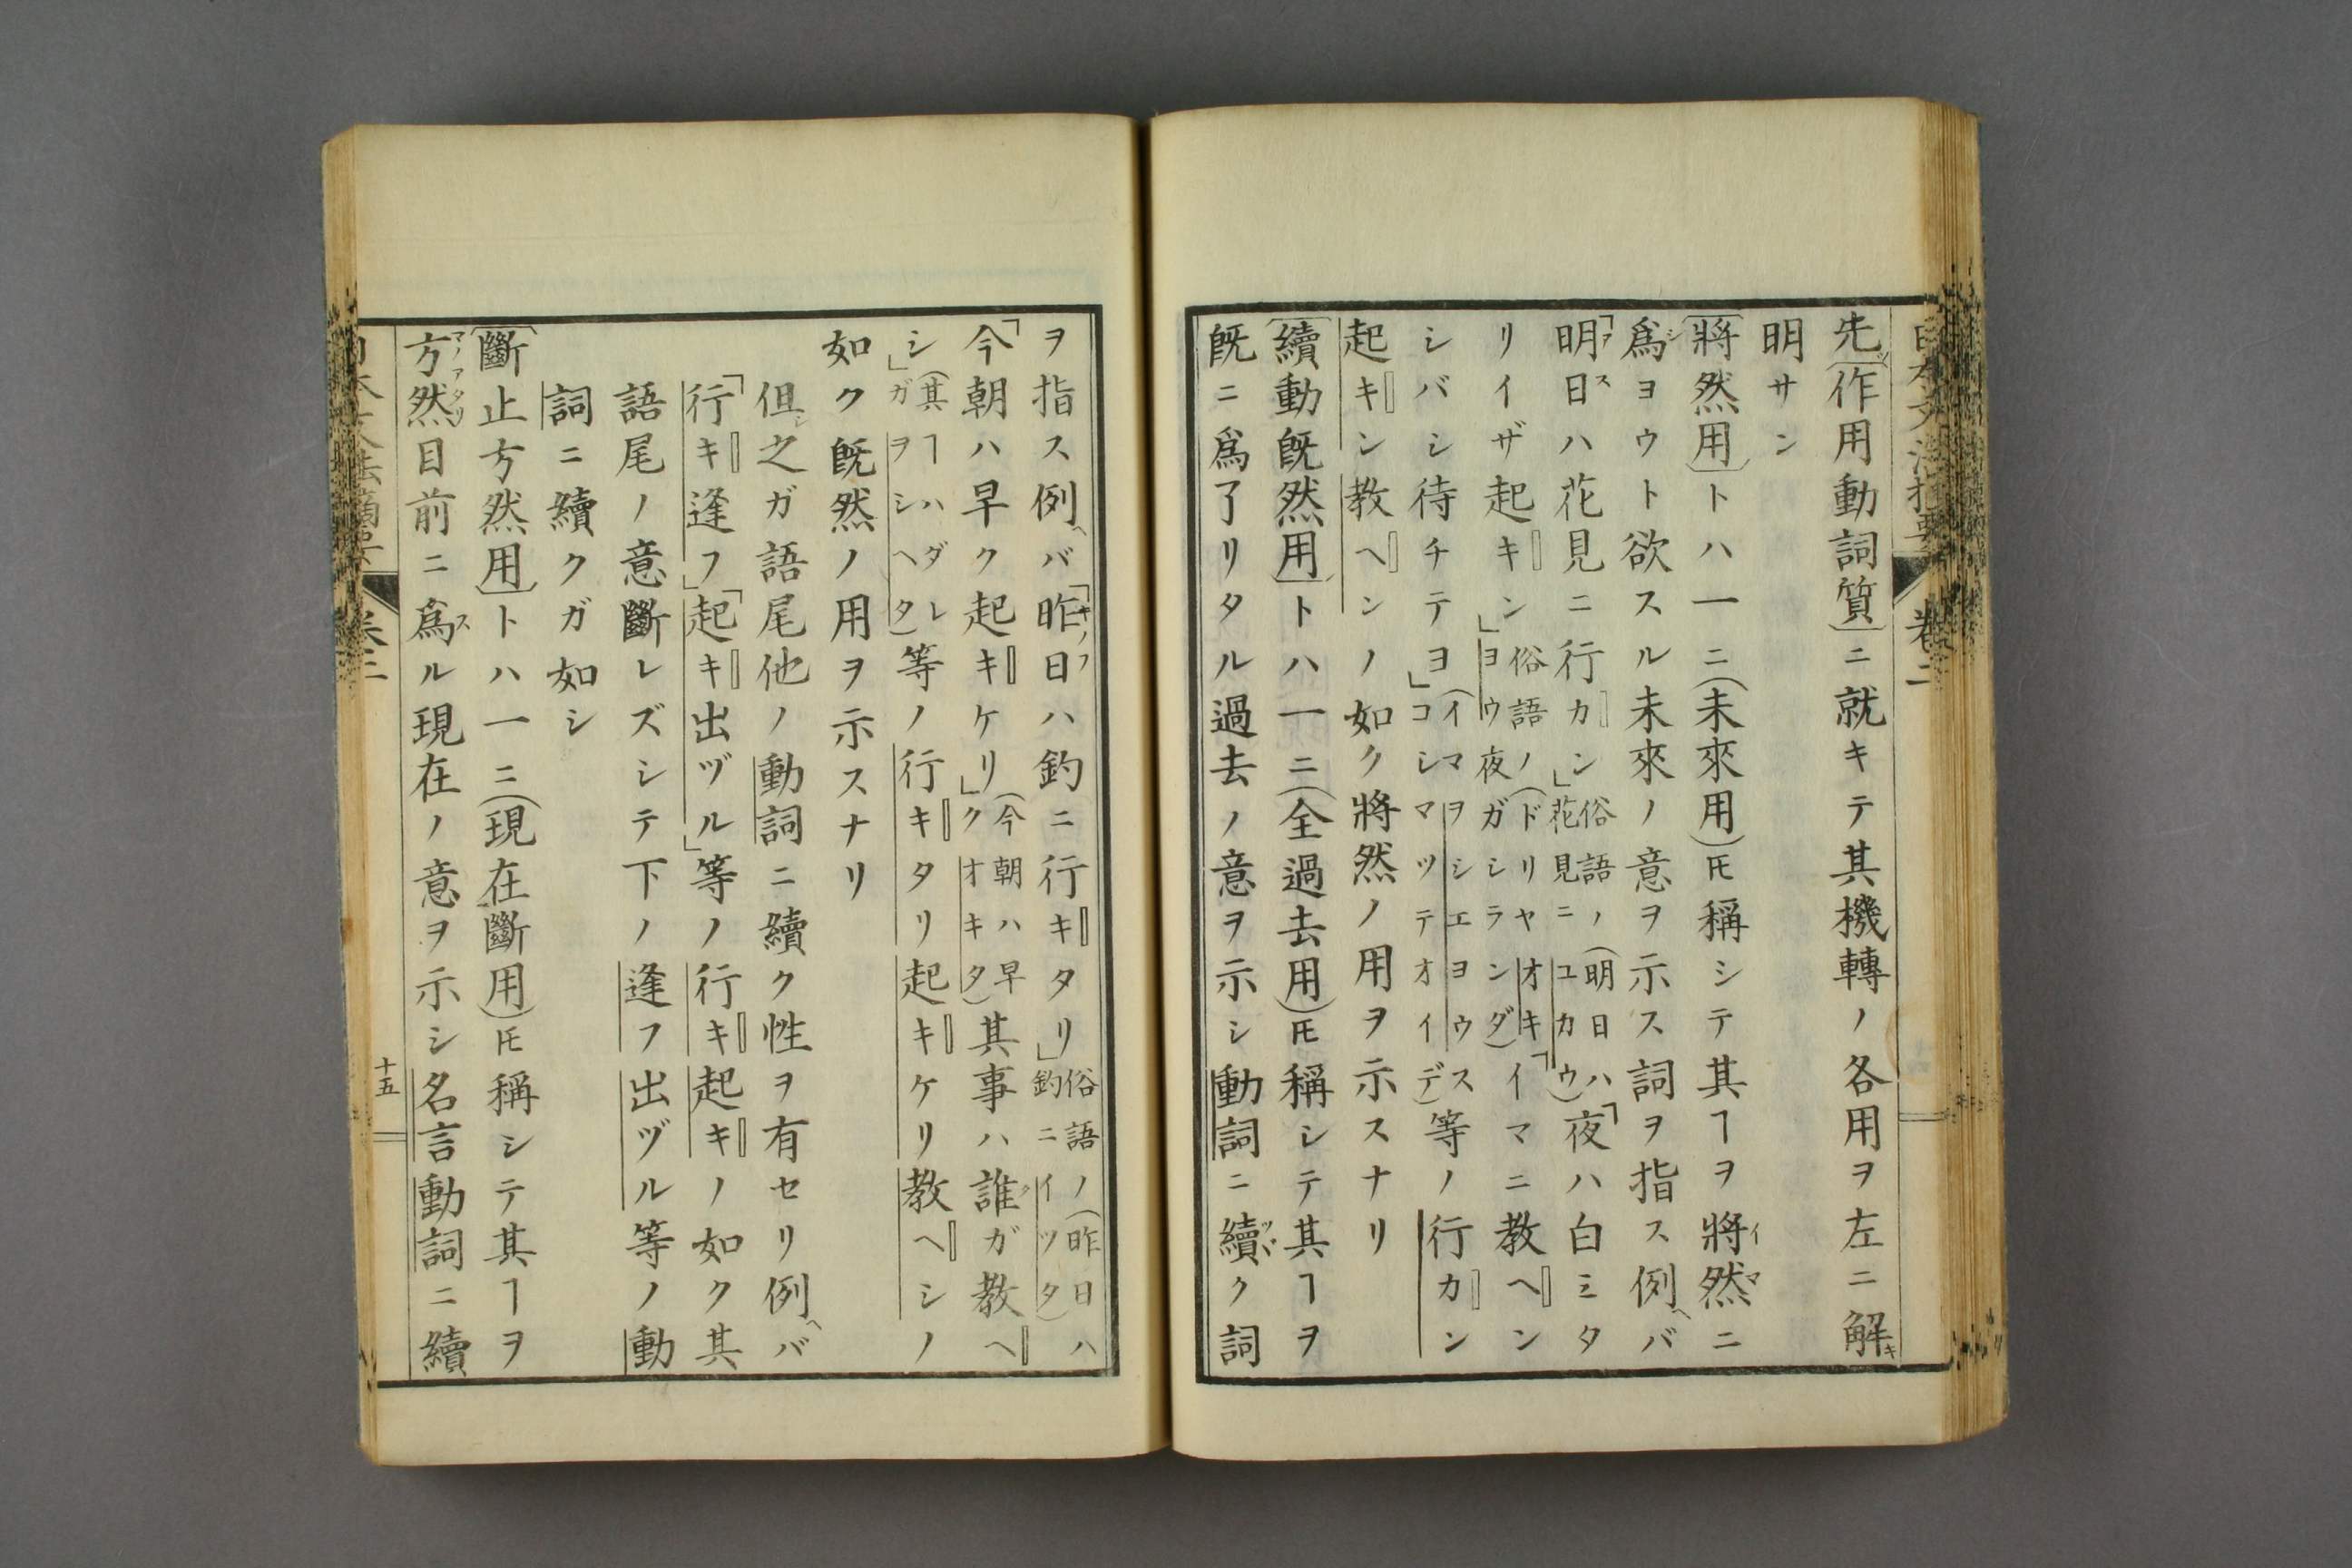 日本文法摘要 巻二
先〔作用動詞質〕ニ就キテ其機轉ノ各用ヲ左ニ解
明サン
〔將然用〕トハ一ニ(未來用)𪜈稱シテ其ヿヲ將然ニ
爲ヨウト欲スル未來ノ意ヲ示ス詞ヲ指ス例バ
「明日ハ花見ニ行カン」俗語ノ(明日ハ花見ニユカウ)「夜ハ白ミタ
リイザ起キン」俗語ノ(ドリヤオキヨウ夜ガシランダ)「イマニ教ヘン
シバシ待チテヨ」(イマヲシエヨウスコシマツテテオイデ)等ノ行カン
起キン教ヘンノ如ク將然ノ用ヲ示スナリ
〔續動既然用〕トハ一ニ(全過去用)𪜈稱シテ其ヿヲ
既ニ爲了リタル過去ノ意ヲ示シ動詞ニ續ク詞
ヲ指ス例バ「昨日ハ釣ニ行キタリ」俗語ノ(昨日ハ釣ニイツタ)
「今朝ハ早ク起キケリ」(今朝ハ早クオキタ)其事ハ誰ガ教ヘ
シ」(其ヿハダレガヲシヘタ)等ノ行キタリ起キケリ教ヘシノ
如ク既然ノ用ヲ示スナリ
但之ガ語尾他ノ動詞ニ續ク性ヲ有セリ例バ
「行キ逢フ」「起キ出ヅル」等ノ行キ起キノ如ク其
語尾ノ意斷レズシテ下ノ逢フ出ヅル等ノ動
詞ニ續クガ如シ
〔斷止方然用〕トハ一ニ(現在斷用)𪜈稱シテ其ヿヲ
方然目前ニ爲ル現在ノ意ヲ示シ名言動詞ニ續
十五